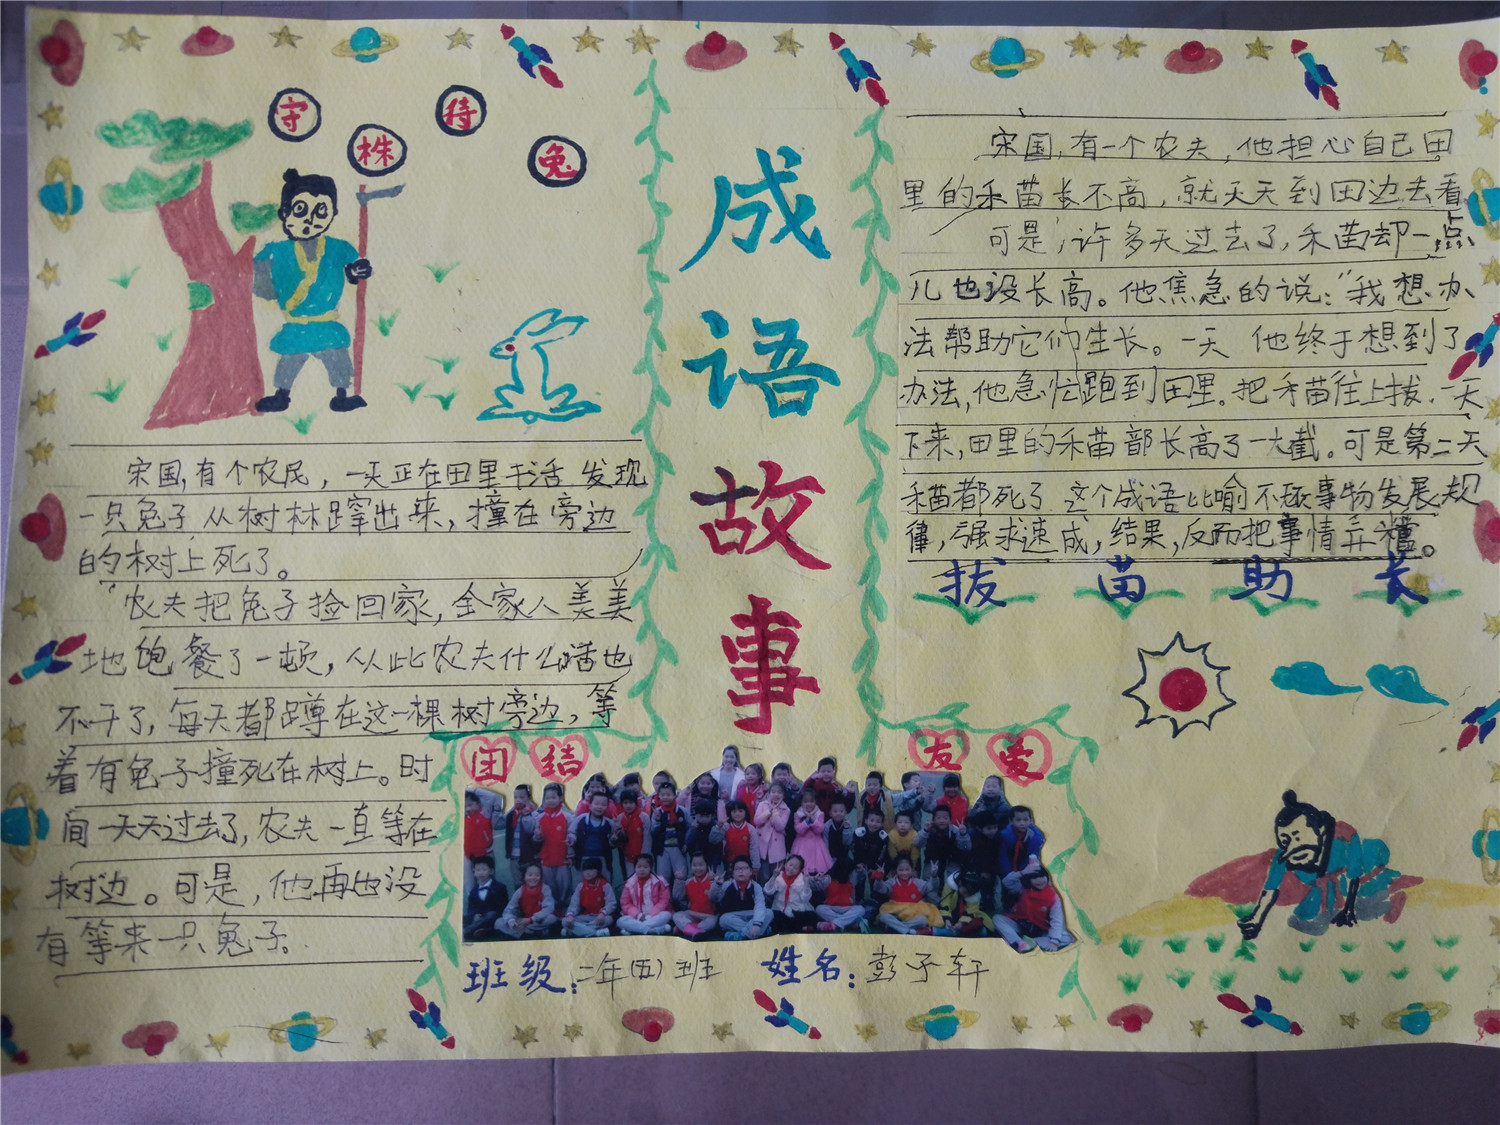 守株待兔
宋国，有个农民，一天正在田里干活 发现
一只兔子 从树林蹿出来，撞在旁边
的树上死了。
农夫把兔子捡回家，全家人美美
地饱餐了一顿，从此农夫什么活也
不干了，每天都蹲在这一棵树旁边，等
着有兔子撞死在树上。时
间一天天过去了，农夫一直等在
树边。可是，他再也没
有等来一只兔子。
成语故事
宋国，有一个农夫，他担心自己田
里的禾苗长不高，就天天到田边去看
可是，许多天过去了，禾苗却一点
儿也没长高。他焦急的说：“我想办
法帮助它们生长。一天 他终于想到了
办法，他急忙跑到田里。把禾苗往上拔，一天
下来，田里的禾苗都长高了一大截。可是第二天
禾苗都死了 这个成语比喻不顾事物发展规
律，强求速成，结果，反而把事情弄糟。
拔苗助长
团结
友爱
班级：二年(五)班 姓名：彭子轩